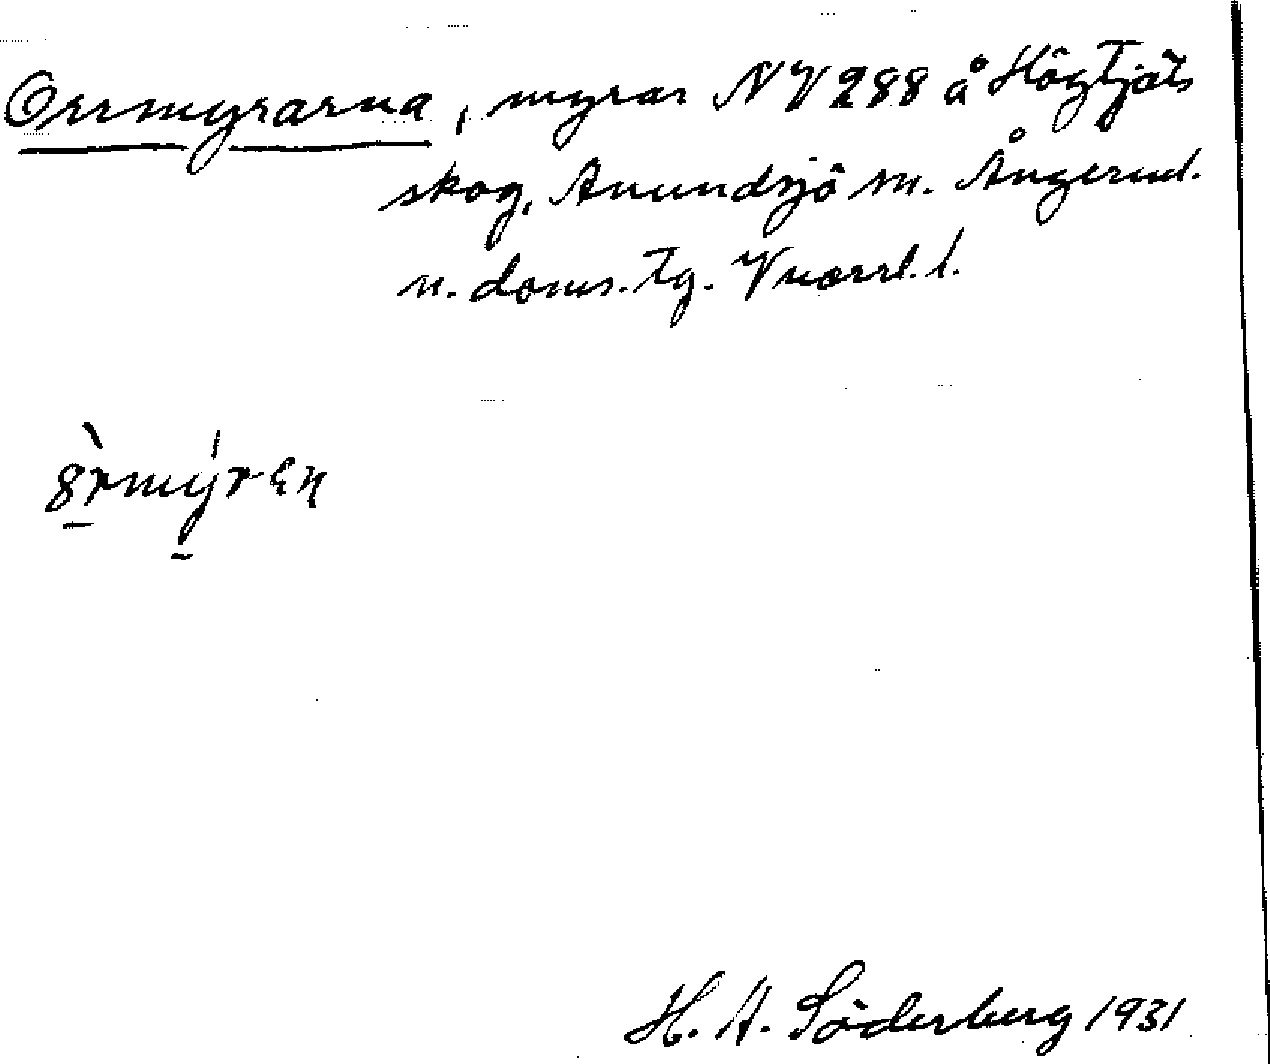 Orrmyrarna, myrar NV 288 å Högtjäls
skog, Anundsjö sn. Ångerml.
n. doms. tg. Vnorrl. l.
H. A. Söderberg 1931